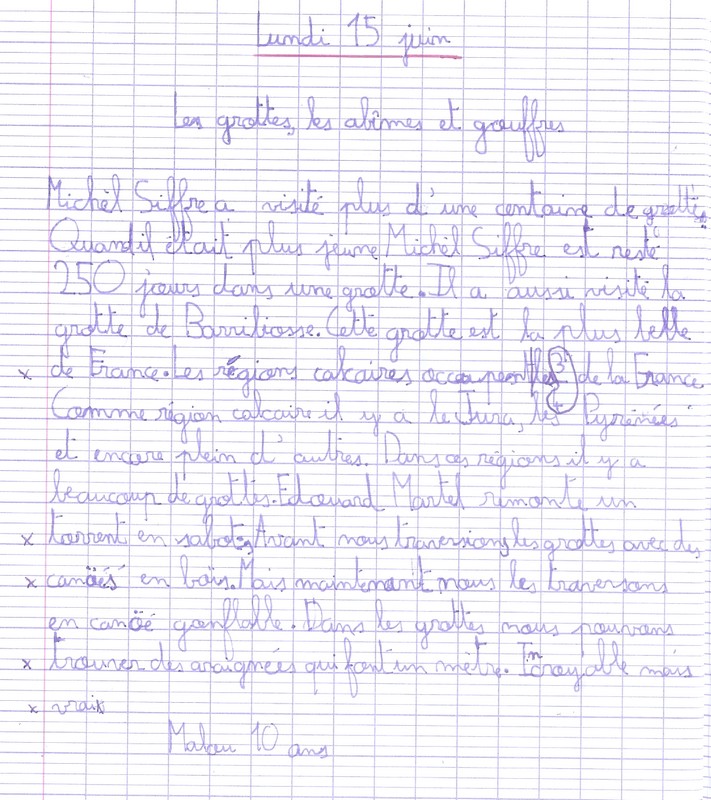 Lundi 15 juin
Les grottes, les abîmes et gouffres
Michel Siffre a visité plus d'une centaine de grottes.
Quand il était plus jeune Michel Siffre est resté
250 jours dans une grotte. Il a aussi visité la
grotte de Barriliosse. Cette grotte est la plus belle
x de France. Les régions calcaires occupent les 3/5 de la France
Comme région calcaire il y a le Jura, les Pyrénées
et encore plein d'autres. Dans ces régions il y a
beaucoup de grottes. Edouard Martel remonte un
x torrent en sabots. Avant nous traversions les grottes avec des
x canöés en bois. Mais maintenant nous les traversons
en canöé gonflable. Dans les grottes nous pouvons
x trouver des araignées qui font un mètre. Incroyable mais
x vrai
Malou 10 ans